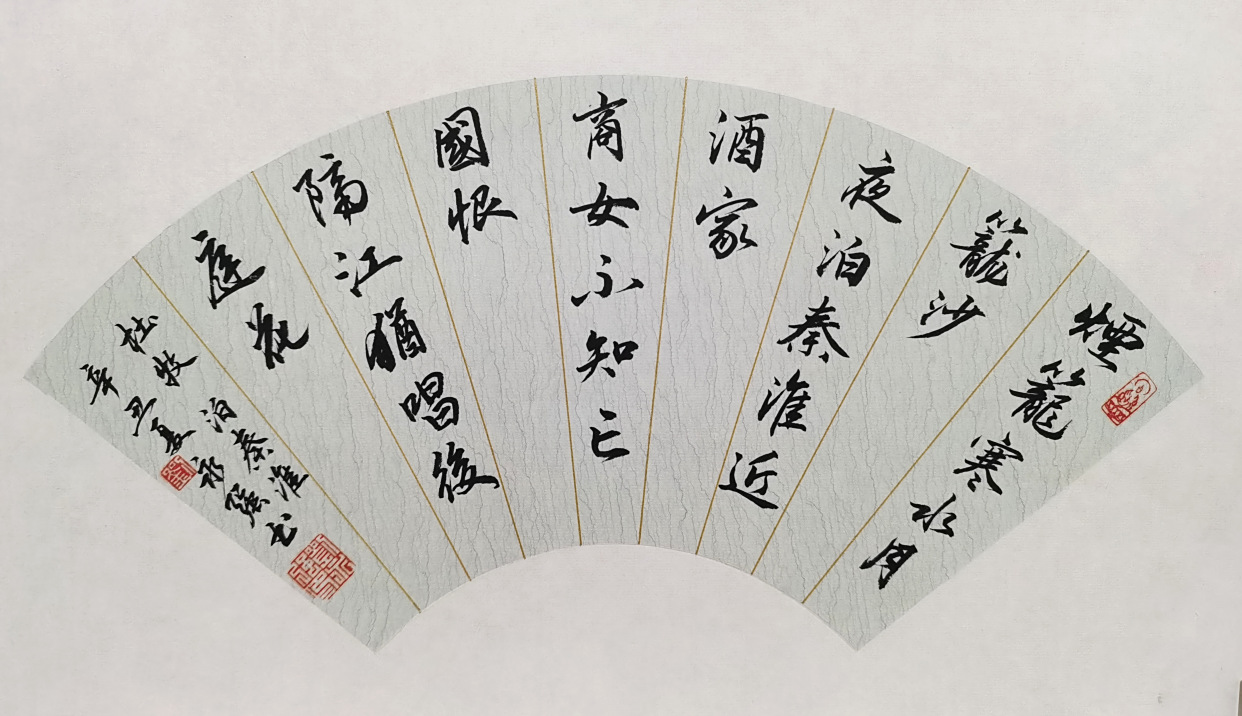 煙籠寒水月
籠沙
夜泊秦淮近
酒家
商女不知亡
國恨
隔江猶唱後
庭花
杜牧泊秦淮
辛丑夏书